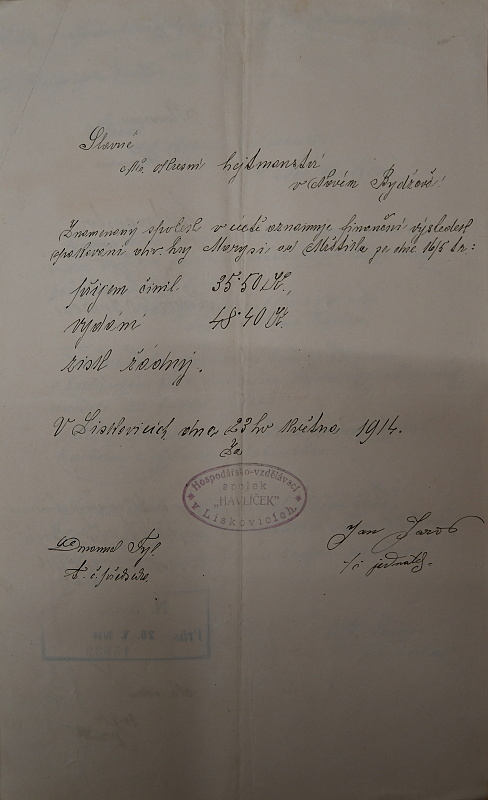 Slavné
c.k. okresní hejtmanství
v Novém Bydžově!
Znamenaný spolek v úctě oznamuje finanční výsledek
opakování div. hry Maryši od Mrštíka ze dne 16/5 t.r.:
příjem činil 35·50 K.,
vydání 48·40 K.
zisk žádný.
V Liskovicích, dne 23ho května 1914.
Za
Hospodářsko-vzdělávací
spolek
„HAVLÍČEK"
v Liskovicích.
Emanuel Tyl
t. č. předseda.
Jan Jaroš
t/č jednatel.